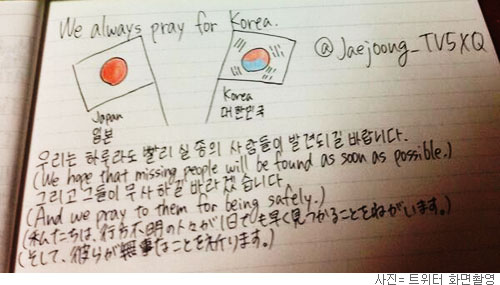 We always pray for Korea.
@Jaejoong_TV5XQ
Japan
일본
Korea
대한민국
우리는 하루라도 빨리 실종의 사람들이 발견되길 바랍니다.
(We hope that missing people will be found as soon as possible.)
그리고 그들이 무사하길 바라겠습니다
(And we pray to them for being safely.)
(私たちは、行方不明の人々が1日でも早く見つかることをねがいます。)
(そして、彼らが無事なことを祈ります。)
사진= 트위터 화면촬영